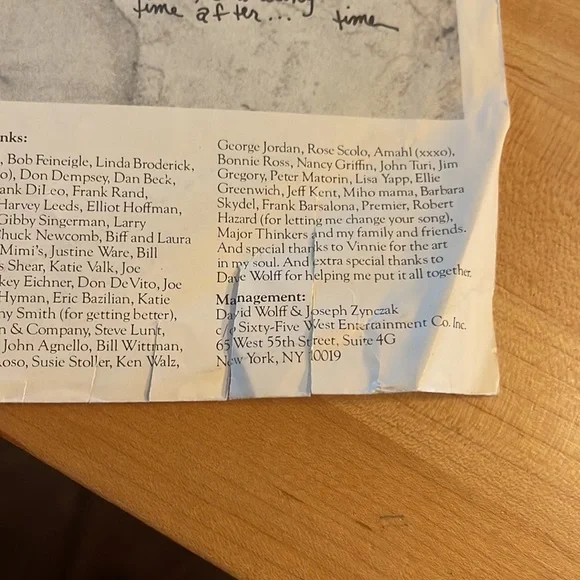 time after... time
nks:
, Bob Feineigle, Linda Broderick,
o), Don Dempsey, Dan Beck,
ank DiLeo, Frank Rand,
Harvey Leeds, Elliot Hoffman,
Gibby Singerman, Larry
Chuck Newcomb, Biff and Laura
Mimi's, Justine Ware, Bill
s Shear, Katie Valk, Joe
key Eichner, Don DeVito, Joe
Hyman, Eric Bazilian, Katie
ny Smith (for getting better),
n & Company, Steve Lunt,
John Agnello, Bill Wittman,
Roso, Susie Stoller, Ken Walz,
George Jordan, Rose Scolo, Amahl (xxxo),
Bonnie Ross, Nancy Griffin, John Turi, Jim
Gregory, Peter Matorin, Lisa Yapp, Ellie
Greenwich, Jeff Kent, Miho mama, Barbara
Skydel, Frank Barsalona, Premier, Robert
Hazard (for letting me change your song),
Major Thinkers and my family and friends.
And special thanks to Vinnie for the art
in my soul. And extra special thanks to
Dave Wolff for helping me put it all together.
Management:
David Wolff & Joseph Zynczak
c/o Sixty-Five West Entertainment Co. Inc.
65 West 55th Street, Suite 4G
New York, NY 10019